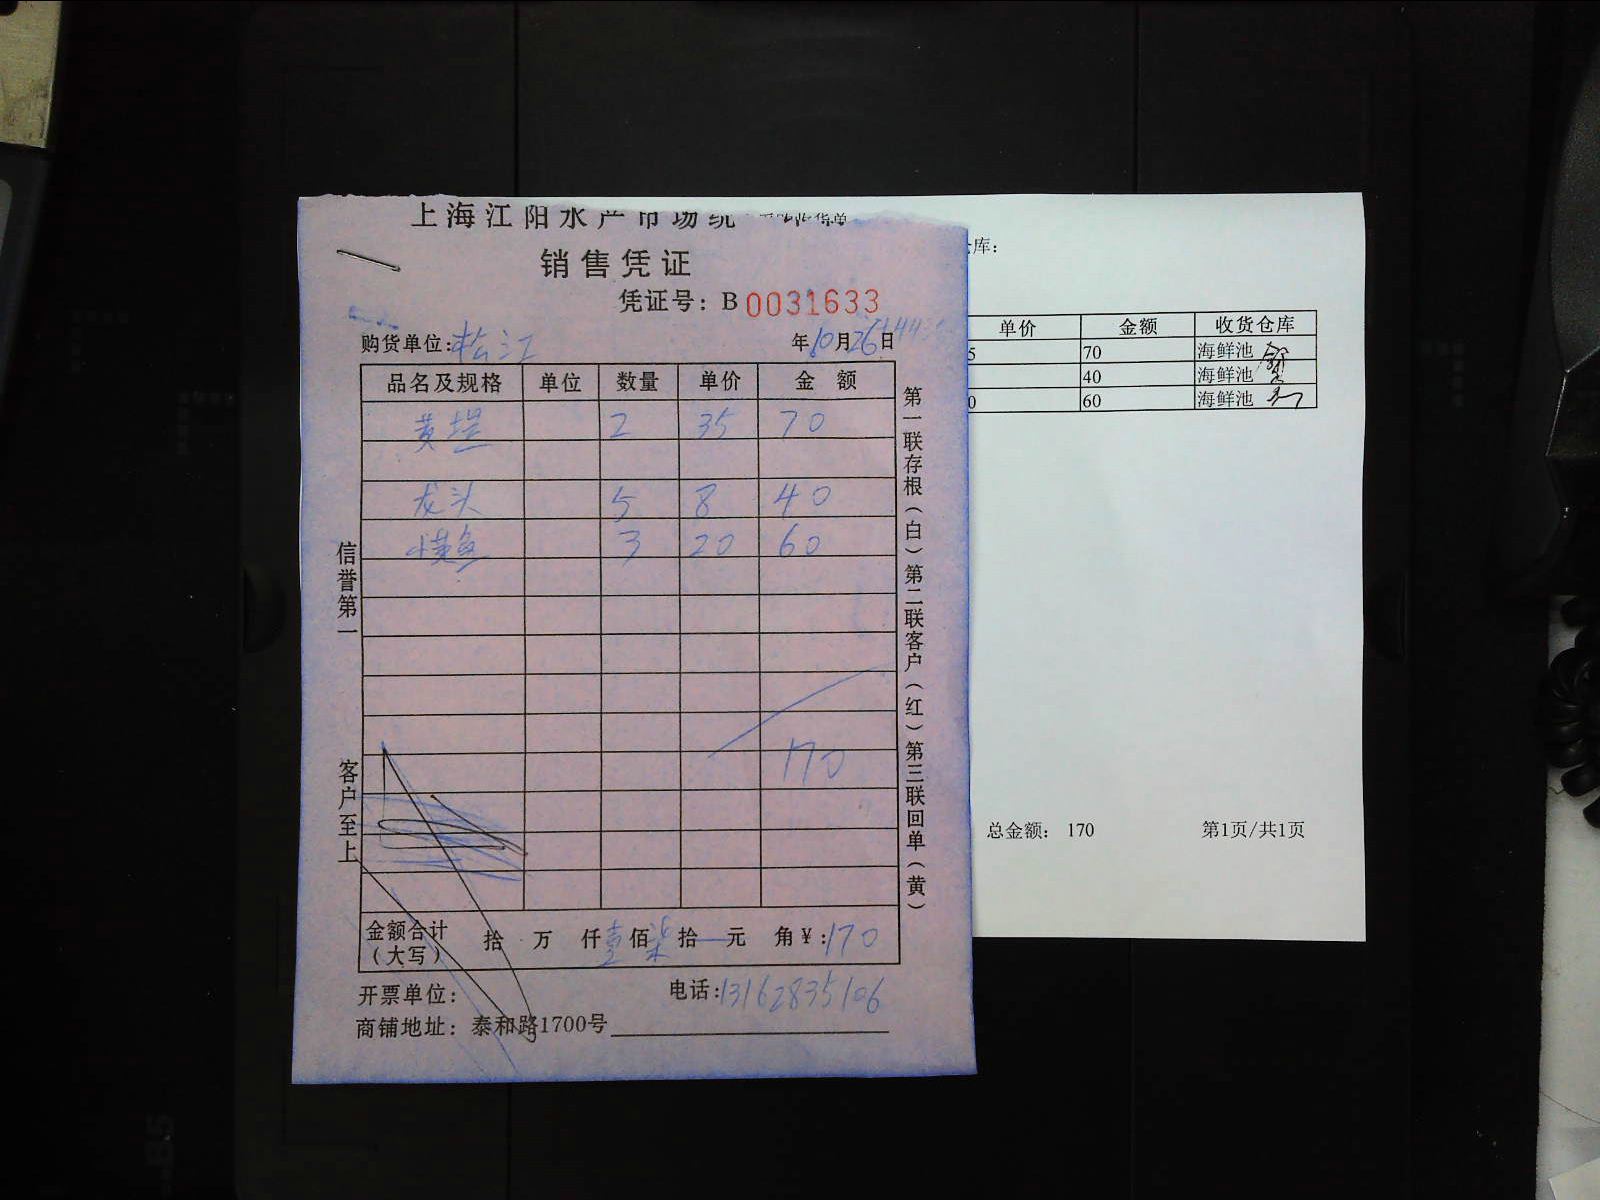 上海江阳水产市场统
货单
销售凭证
凭证号：B 0031633
购货单位:松江 年10月26日
品名及规格 单位 数量 单价 金额
2 35 70
龙头 5 8 40
3 20 60
170
金额合计（大写） 拾 万 仟壹佰柒拾 元 角¥:170
开票单位： 电话:13162835106
商铺地址：泰和路1700号
信誉第一
客户至上
第一联存根（白）第二联客户（红）第三联回单（黄）
库：
单价 金额 收货仓库
5 70 海鲜池
40 海鲜池
0 60 海鲜池
总金额： 170 第1页/共1页